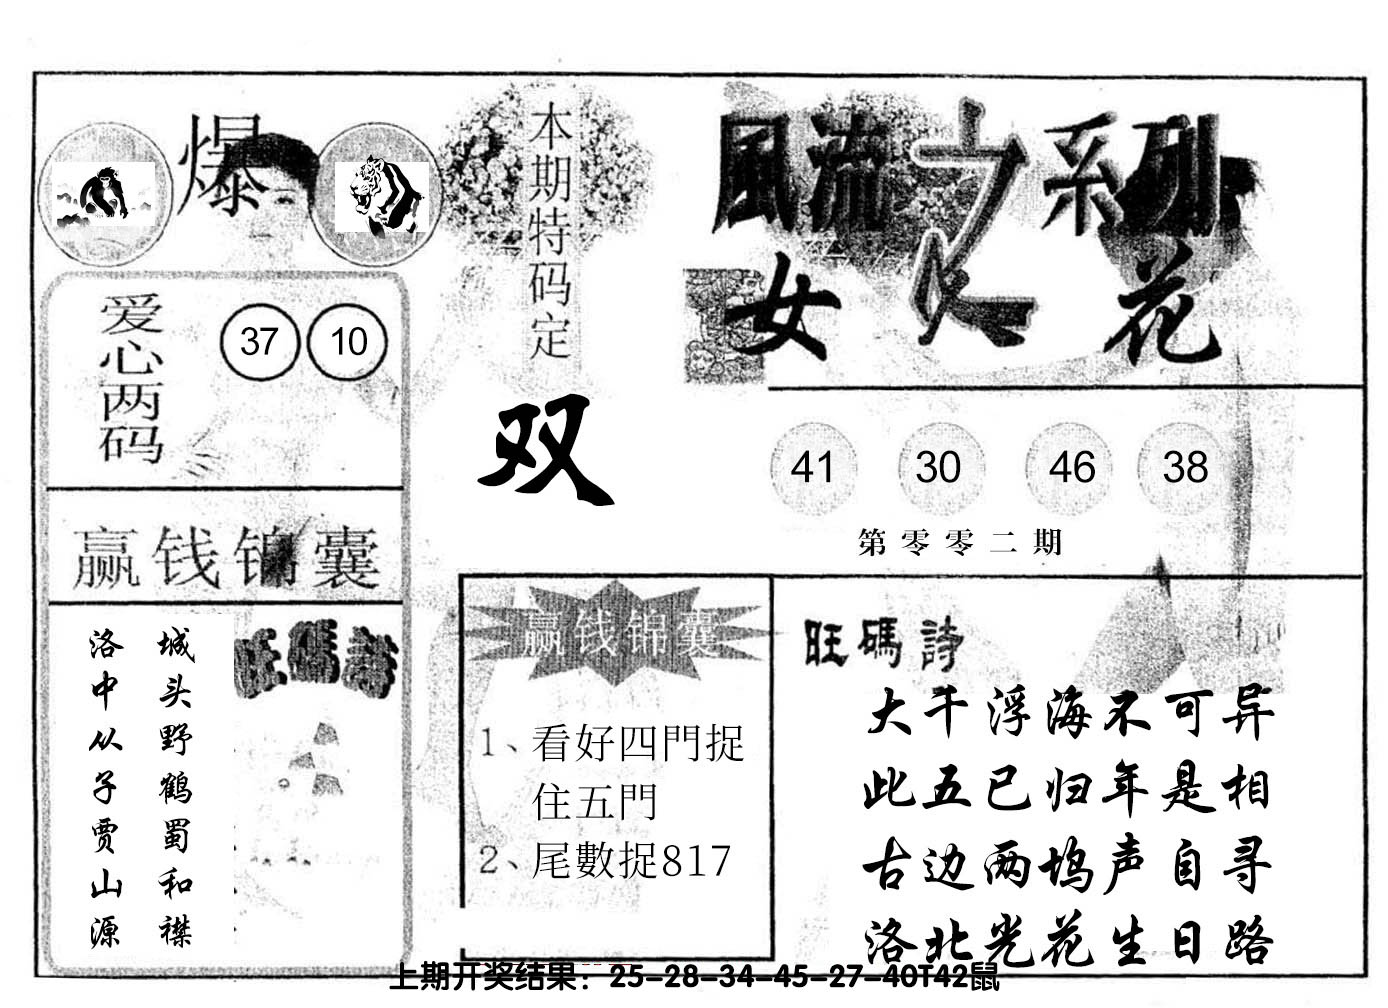 爆
本期特码定
双
爱心两码
37 10
赢钱锦囊
城头野鹤蜀和襟
洛中从子贾山源
旺碼詩
風流之系列
女人花
41 30 46 38
第零零二期
赢钱锦囊
1、看好四門捉
住五門
2、尾數捉817
旺碼詩
大千浮海不可异
此五已归年是相
古边两坞声自寻
洛北光花生日路
上期开奖结果：25-28-34-45-27-40T42鼠